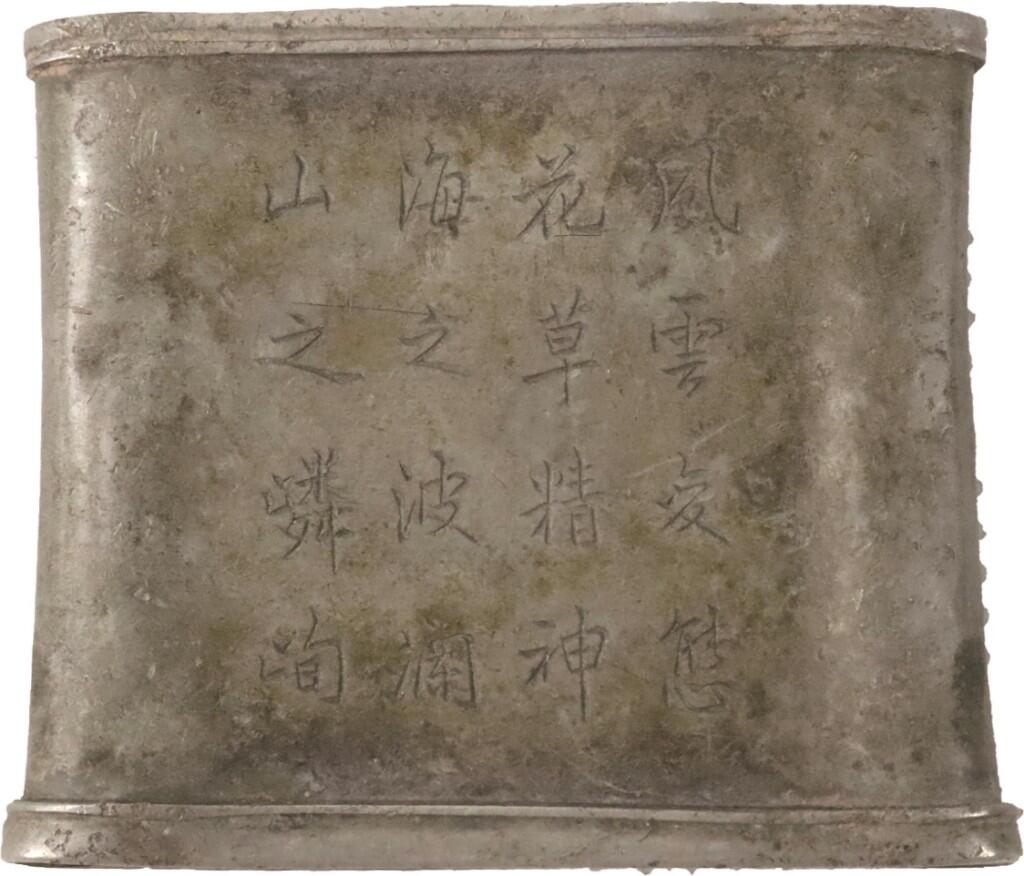 風雲变態
花草精神
海之波瀾
山之嶙峋